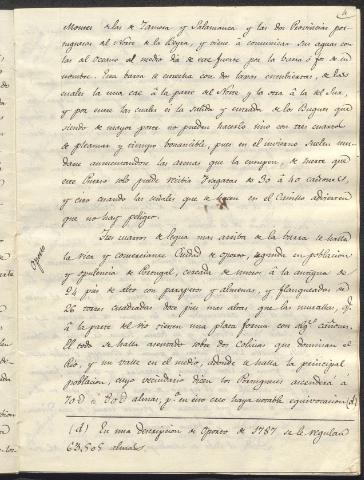 Montes de las de Zamora y Salamanca y las dos Provincias Por-
tuguesas al Norte de la Beyra, y viene a comunicar sus aguas con
las al Oceano al medio dia de este fuerte por la barra o foz de su
nombre. Esta barra se encuentra con dos lavas, de las
cuales la una cae à la parte del Norte y la otra à la del Sur,
y por entre las cuales es la salida y entrada de los Buques que
siendo de mayor porte no pueden hacerlo sino con tres cuartos
de pleamar y tiempo bonancible, pues en el invierno suelen mu-
darse aumentandose las arenas que la componen, de suerte que
este Puerto solo puede recibir Fragatas de 30 à 40 cañones,
y esto cuando las señales que se hacen en el Castillo advierten
que no hay peligro.
Oporto
Tres cuartos de legua mas arriba de la barra se halla
la rica y comerciante Ciudad de Oporto, segunda en poblacion
y opulencia de Portugal, cercada de muros à la antigua de
24 pies de alto con parapetos y almenas, y flanqueados de
26 torres cuadradas doce pies mas altas que las murallas, q.e
à la parte del rio tienen una plata forma con alg.s cañones.
El todo se halla asentado sobre dos Colinas que dominan el
Rio, y un valle en el medio, adonde se halla la principal
poblacion, cuyo vecindario dicen los Portugueses ascendera a
70 à 80 almas, p.o en esto creo haya notable equivocacion (d)
(d) En una descripcion de Oporto de 1787 se le regulan
63,505 almas.